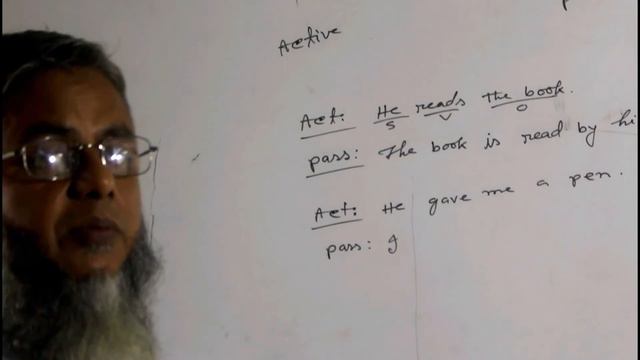 Active
Act: He reads the book.
S V O
pass: The book is read by hi
Act: He gave me a pen.
pass: I